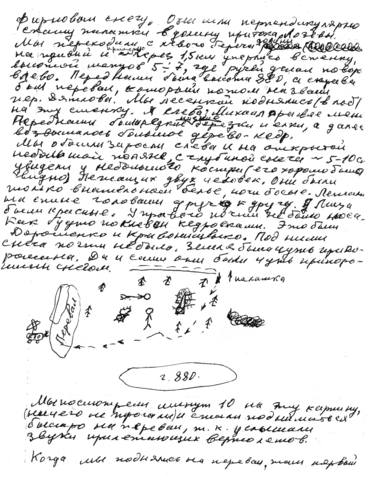 фирновому снегу. Они шли перпендикулярно
склону палатки в долину притока Лозьвы.
Мы переходили с левого берега долины
на правый и через 1,5 км уперлись в стенку,
высотой метров 5-7, где ручей делал поворот
влево. Перед нами была высота 880, а справа
был перевал, который потом назвали
пер. Дятлова. Мы лесенкой поднялись (в лоб)
на эту стенку. Я слева, Михаил правее меня
Перед нами были редкие березки и елки, а далее
возвышалось большое дерево - кедр.
Мы обошли заросли слева и на открытой
небольшой поляне, с глубиной снега ~ 5-10 см
увидели у небольшого костра (его хорошо было
видно) лежащих двух человек. Они были
только в нательном белье, ноги босые. Лежали
на спине головами друг к другу. Лица
были красные. У правого почти не было носа.
Как будто поклеван кедровками. Это были
Дорошенко и Кривонищенко. Под ними
снега почти не было. Земля была чуть припо-
рошена. Да и сами они были чуть припоро-
шены снегом.
палатка
Перевал
г. 880.
Мы посмотрели минут 10 на эту картину,
(ничего не трогали) и стали подниматься
быстро на перевал, т.к. услышали
звуки прилетающих вертолетов.
Когда мы поднялись на перевал, там первый